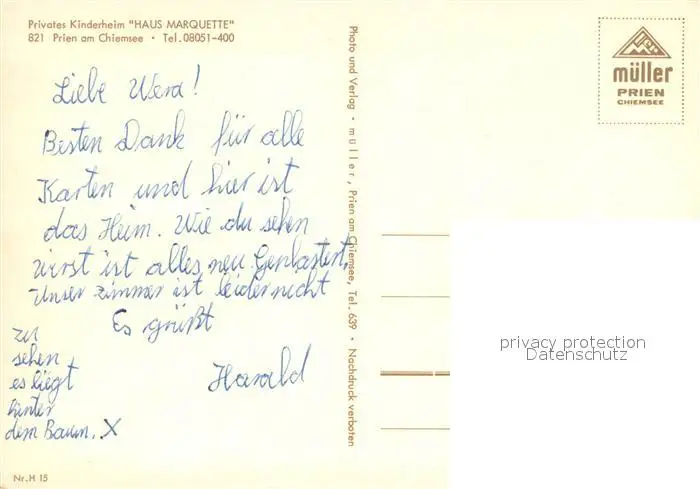 Privates Kinderheim "HAUS MARQUETTE"
821 Prien am Chiemsee • Tel. 08051-400
Liebe Wera!
Besten Dank für alle
Karten und hier ist
das Heim. Wie du sehen
wirst ist alles neu Genbastert,
Unser zimmer ist leider nicht
Es grüßt
Harald
zu
sehen
es liegt
hinter
dem Baum. X
Nr. H 15
Photo und Verlag • müller, Prien am Chiemsee, Tel. 639 • Nachdruck verboten
müller
PRIEN
CHIEMSEE
privacy protection
Datenschutz